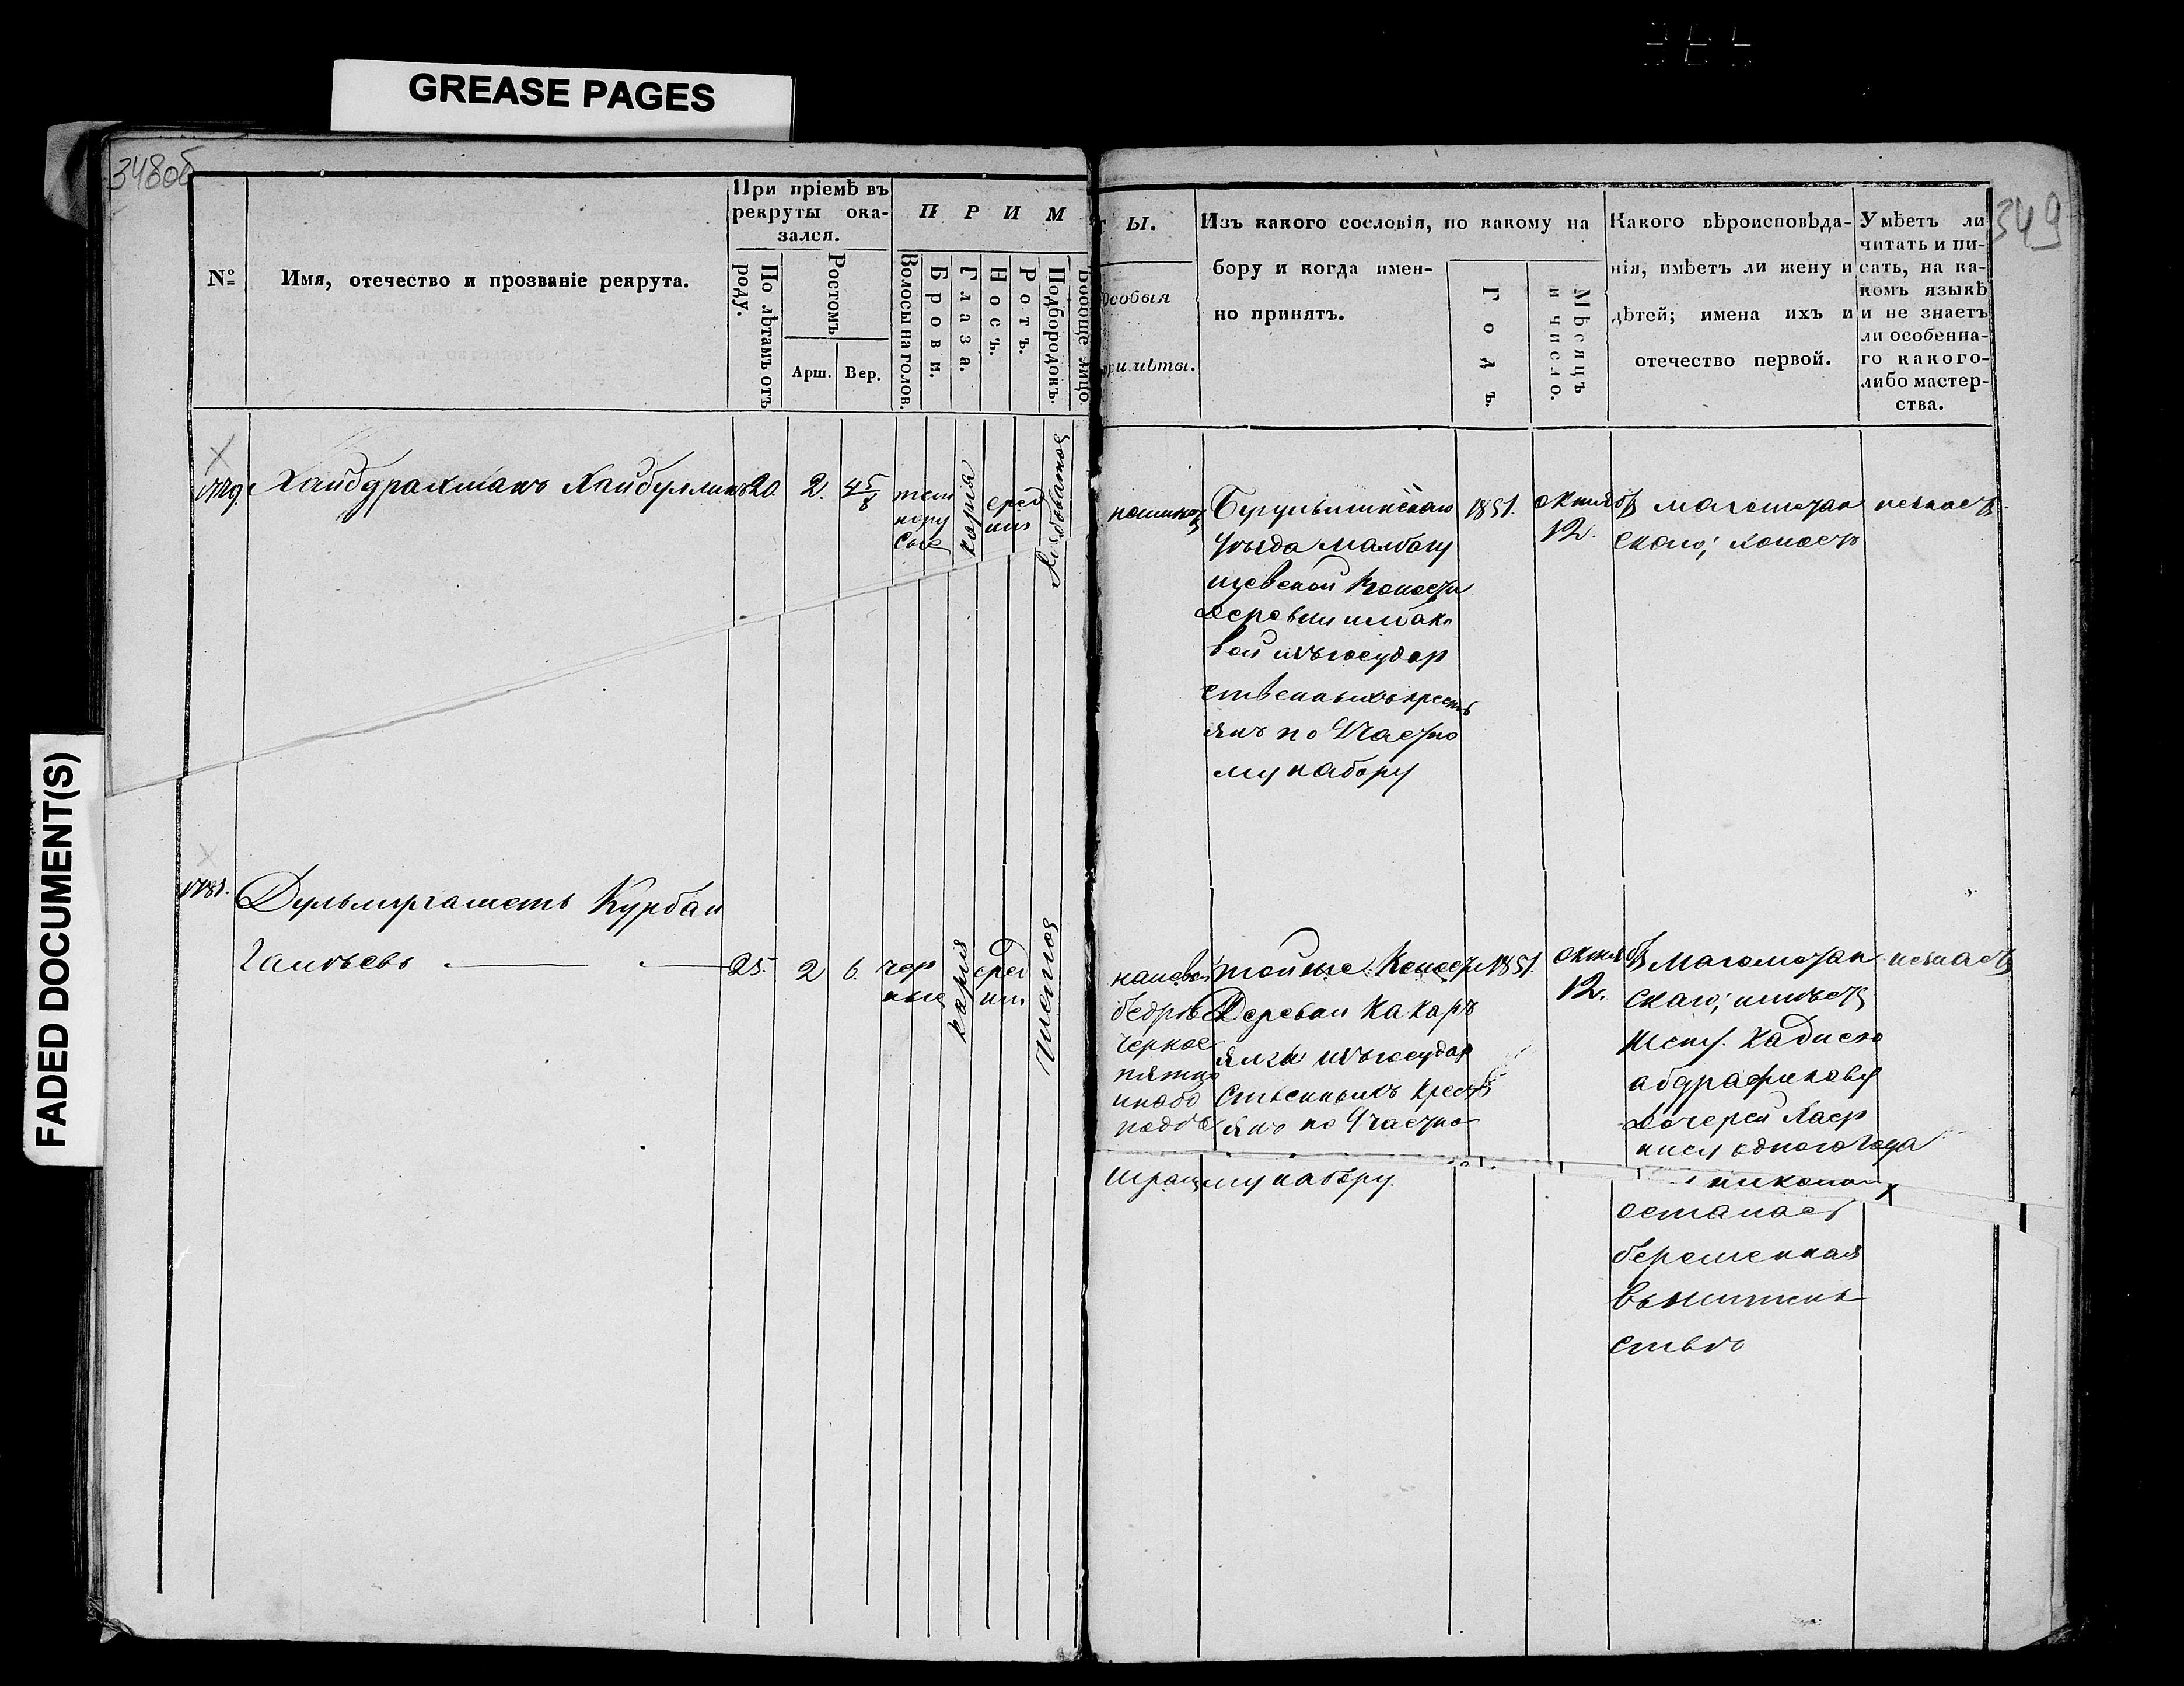 GREASE PAGES
FADED DOCUMENT(S)
348об
349
№
Имя, отечество и прозваніе рекрута.
При пріемѣ въ
рекруты ока-
зался.
По лѣтамъ отъ
роду.
Ростомъ
Арш.
Вер.
П Р И М
Волосы на голов.
Брови.
Глаза.
Носъ.
Ротъ.
Подбородокъ.
Вообще лицо.
Ы.
Особыя
примѣты.
Изъ какого сословія, по какому на
бору и когда имен-
но принятъ.
Годъ.
Мѣсяцъ
и число.
Какого вѣроисповѣда-
нія, имѣетъ ли жену и
дѣтей; имена ихъ и
отечество первой.
Умѣетъ ли
читать и пи-
сать, на ка-
комъ языкѣ
и не знаетъ
ли особенна-
го какого-
либо мастер-
ства.
Хайбдрахманъ Хайбуллинъ 20. 2. 4 5/8
тем
нору
сые
карія
сред
ніе
Бугульминскаго
уѣзда
Волости
деревни
вой изъ государ
ственныхъ кресть
янъ по Частно
му набору
1851.
октяб
12.
магометан
скаго; холостъ
незнаетъ
Курбан
галѣевъ 25. 2 6.
чер
ные
карія
сред
ніе
на лѣвой
бедрѣ
черное
пятно
той же Волости
Деревни Какарь
ялги изъ государ
ственныхъ кресть
янъ по Частно
му набору
1851.
октяб
12.
магометан
скаго; имѣетъ
жену. Хадисю
абдрафикову
дочерей
одного года
осталась
беременная
незнаетъ